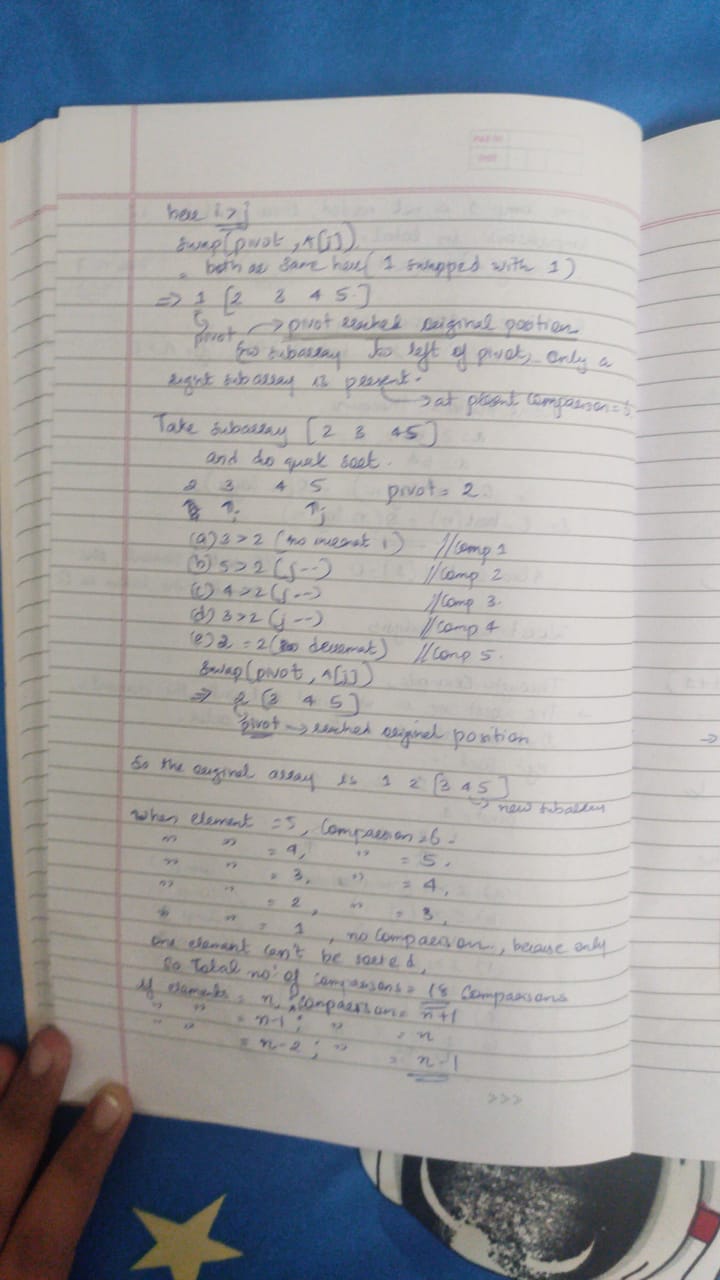 here i>j
swap(pivot, A[j])
= both are same here( 1 swapped with 1)
=> 1 [2 3 4 5]
pivot → pivot reached original position
(no subarray to left of pivot, only a
right subarray is present.
→ at present comparison = 6
Take subarray [2 3 4 5]
and do quick sort.
2 3 4 5 pivot = 2
↑i ↑j
(a) 3>2 (no increment i) //Comp 1
(b) 5>2 (j--) //Comp 2
(c) 4>2 (j--) //Comp 3.
(d) 3>2 (j--) //Comp 4
(e) 2 = 2 (no decrement) //Comp 5.
Swap(pivot, A[j])
=> 2 [3 4 5]
pivot → reached original position
So the original array is 1 2 [3 4 5]
→ new subarray
When element = 5, Comparison = 6.
" " = 4, " = 5,
" " = 3, " = 4,
" " = 2, " = 3,
" " = 1, no comparison, because only
one element can't be sorted,
So Total no: of comparisons = 18 Comparisons
If elements = n, Comparison = n+1
" " = n-1; " = n
" " = n-2; " = n-1
>>>